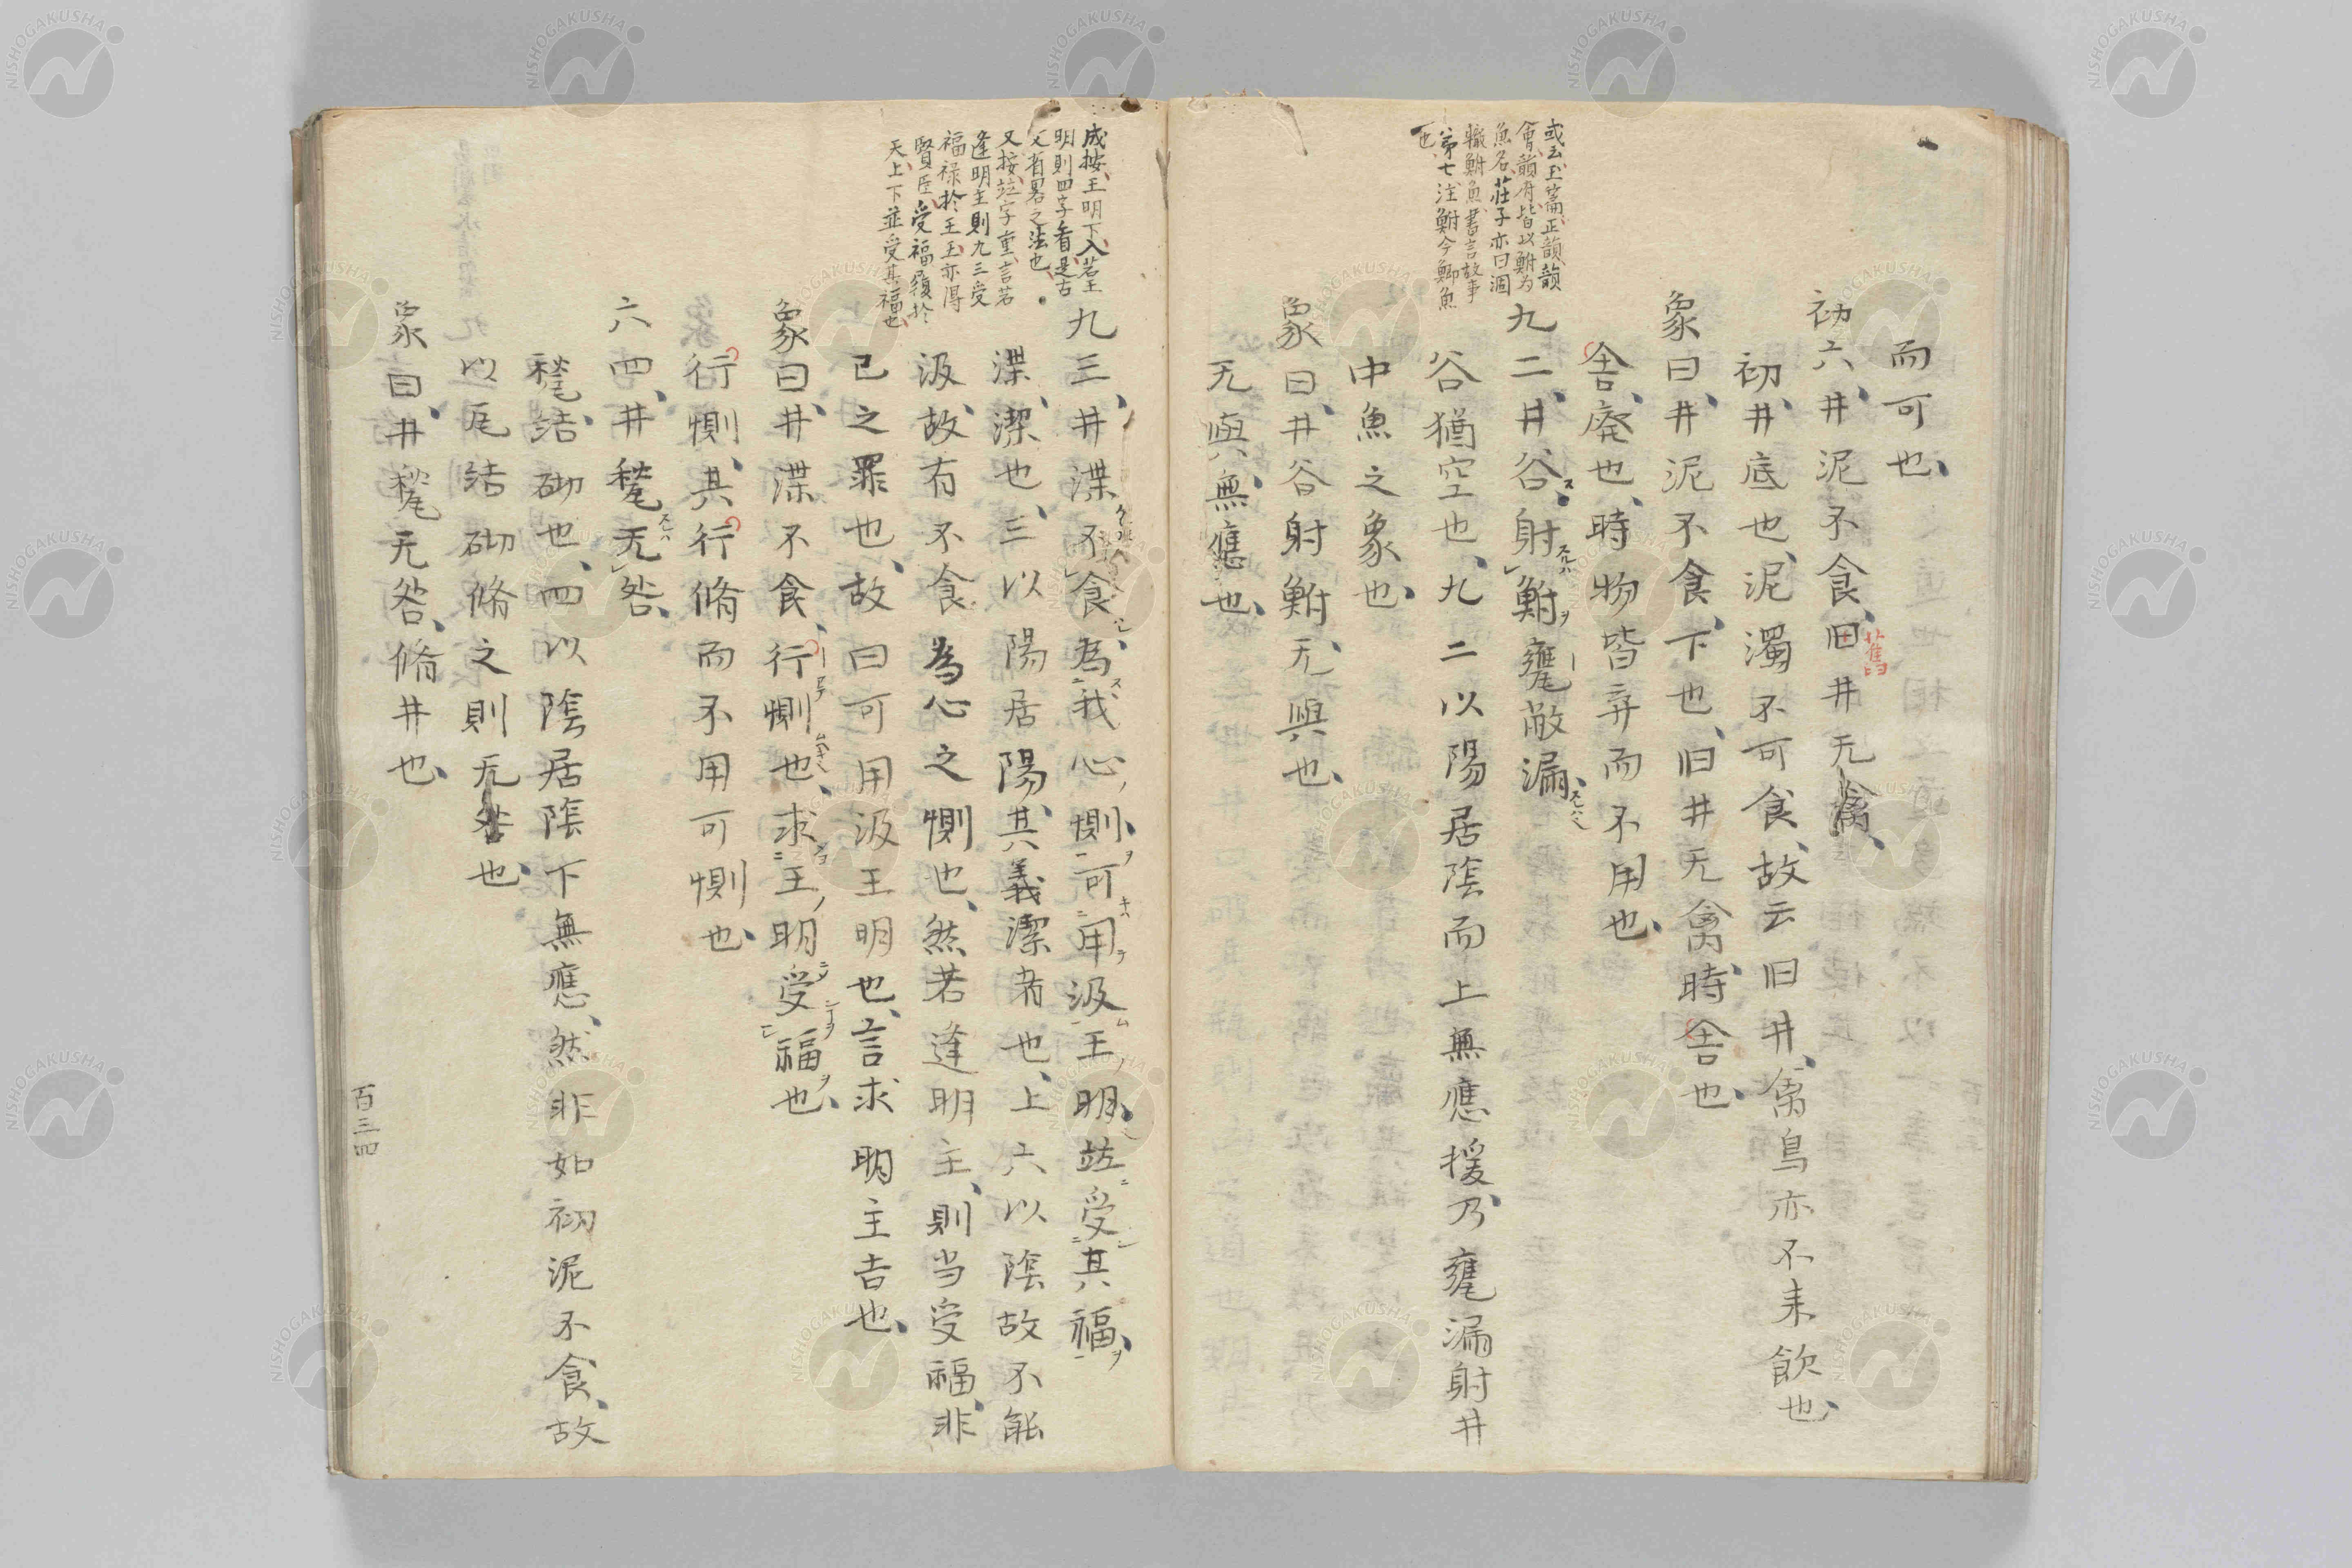 而可也、
初六、井泥不食、旧井无禽、
舊
初、井底也、泥濁不可食、故云旧井、禽鳥亦不来飲也、
象曰、井泥不食、下也、旧井无禽、時舎也、
舎、廃也、時物皆弃而不用也、
或云玉篇正韻韻
會韻府皆以鮒為
魚名、荘子亦曰涸
轍鮒魚、書言故事
第七注鮒今鯽魚
也、
九二、井谷、射鮒、甕敝漏、
谷猶空也、九二以陽居陰而上無應援、乃甕漏射井
中魚之象也、
象曰、井谷射鮒、无與也、
无與、無應也、
成按、王明下入若王
明則四字看、是古
文省畧之法也、
又按竝字重、言若
逢明主則九三受
福禄於王、王亦得
賢臣、受福顀於
天、上下並受其福也、
九三、井渫不食、為我心惻、可用汲、王明、竝受其福、
渫、潔也、三以陽居陽、其義潔者也、上六以陰故不能
汲、故有不食為心之惻也、然若逢明主、則当受福、非
已之罪也、故曰可用汲王明也、言求明主吉也、
象曰、井渫不食、行惻也、求王明受福也、
行惻、其行脩而不用可惻也、
六四、井甃无咎、
甃、結砌也、四以陰居陰下無應、然非如初泥不食、故
以瓦結砌脩之則无咎也、
象曰、井甃无咎、脩井也、
百三四
NISHOGAKUSHA